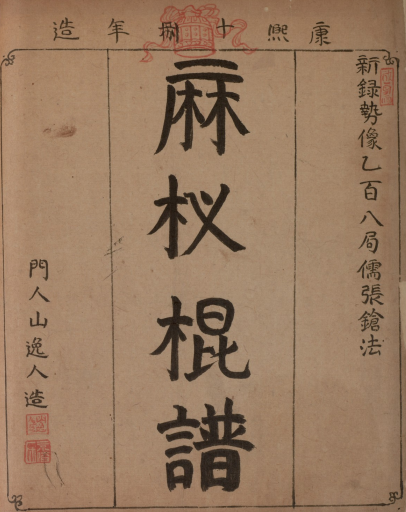 康熙十捌年造
新録勢像乙百八局儒張鎗法
麻杈棍譜
門人山逸人造